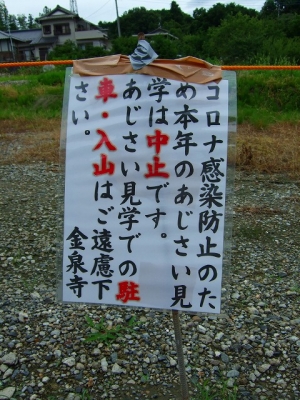 コロナ感染防止のた
め本年のあじさい見
学は中止です。
あじさい見学での駐
車・入山はご遠慮下
さい。
金泉寺